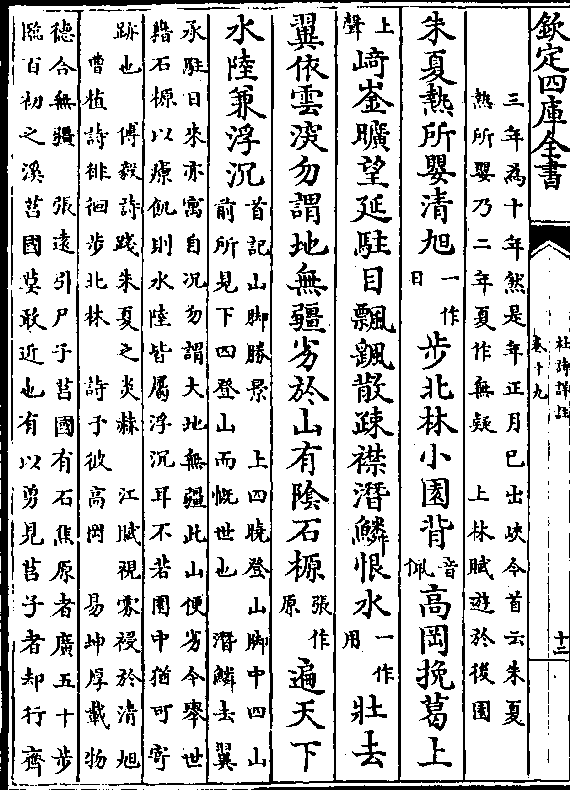 欽定四庫全書
杜詩詳註
卷十九
十二
三年為十年然是年正月已出峽今首云朱夏
熱所嬰乃二年夏作無疑　上林賦遊於後園
朱夏熱所嬰清旭一作日步北林小園背音佩高岡挽葛上
上聲崎崟曠望延駐目飄颻散疎襟潛鱗恨水一作用壯去
翼依雲深勿謂地無疆劣於山有陰石榞張作原遍天下
水陸兼浮沉首記山脚勝景　上四曉登山脚中四山
前所見下四登山而慨世也　潛鱗去翼
承駐目來亦寓自沉勿謂大地無疆此山便劣今舉世
鑿石榞以療飢則水陸皆屬浮沉耳不若園中猶可寄
跡也　傅毅詩踐朱夏之炎赫　江賦視雰祲於清旭
曹植詩徘徊步北林　詩于彼高岡　易坤厚載物
德合無疆　張遠引尸子莒國有石焦原者廣五十步
臨百初之溪莒國莫敢近也有以勇見莒子者却行齊